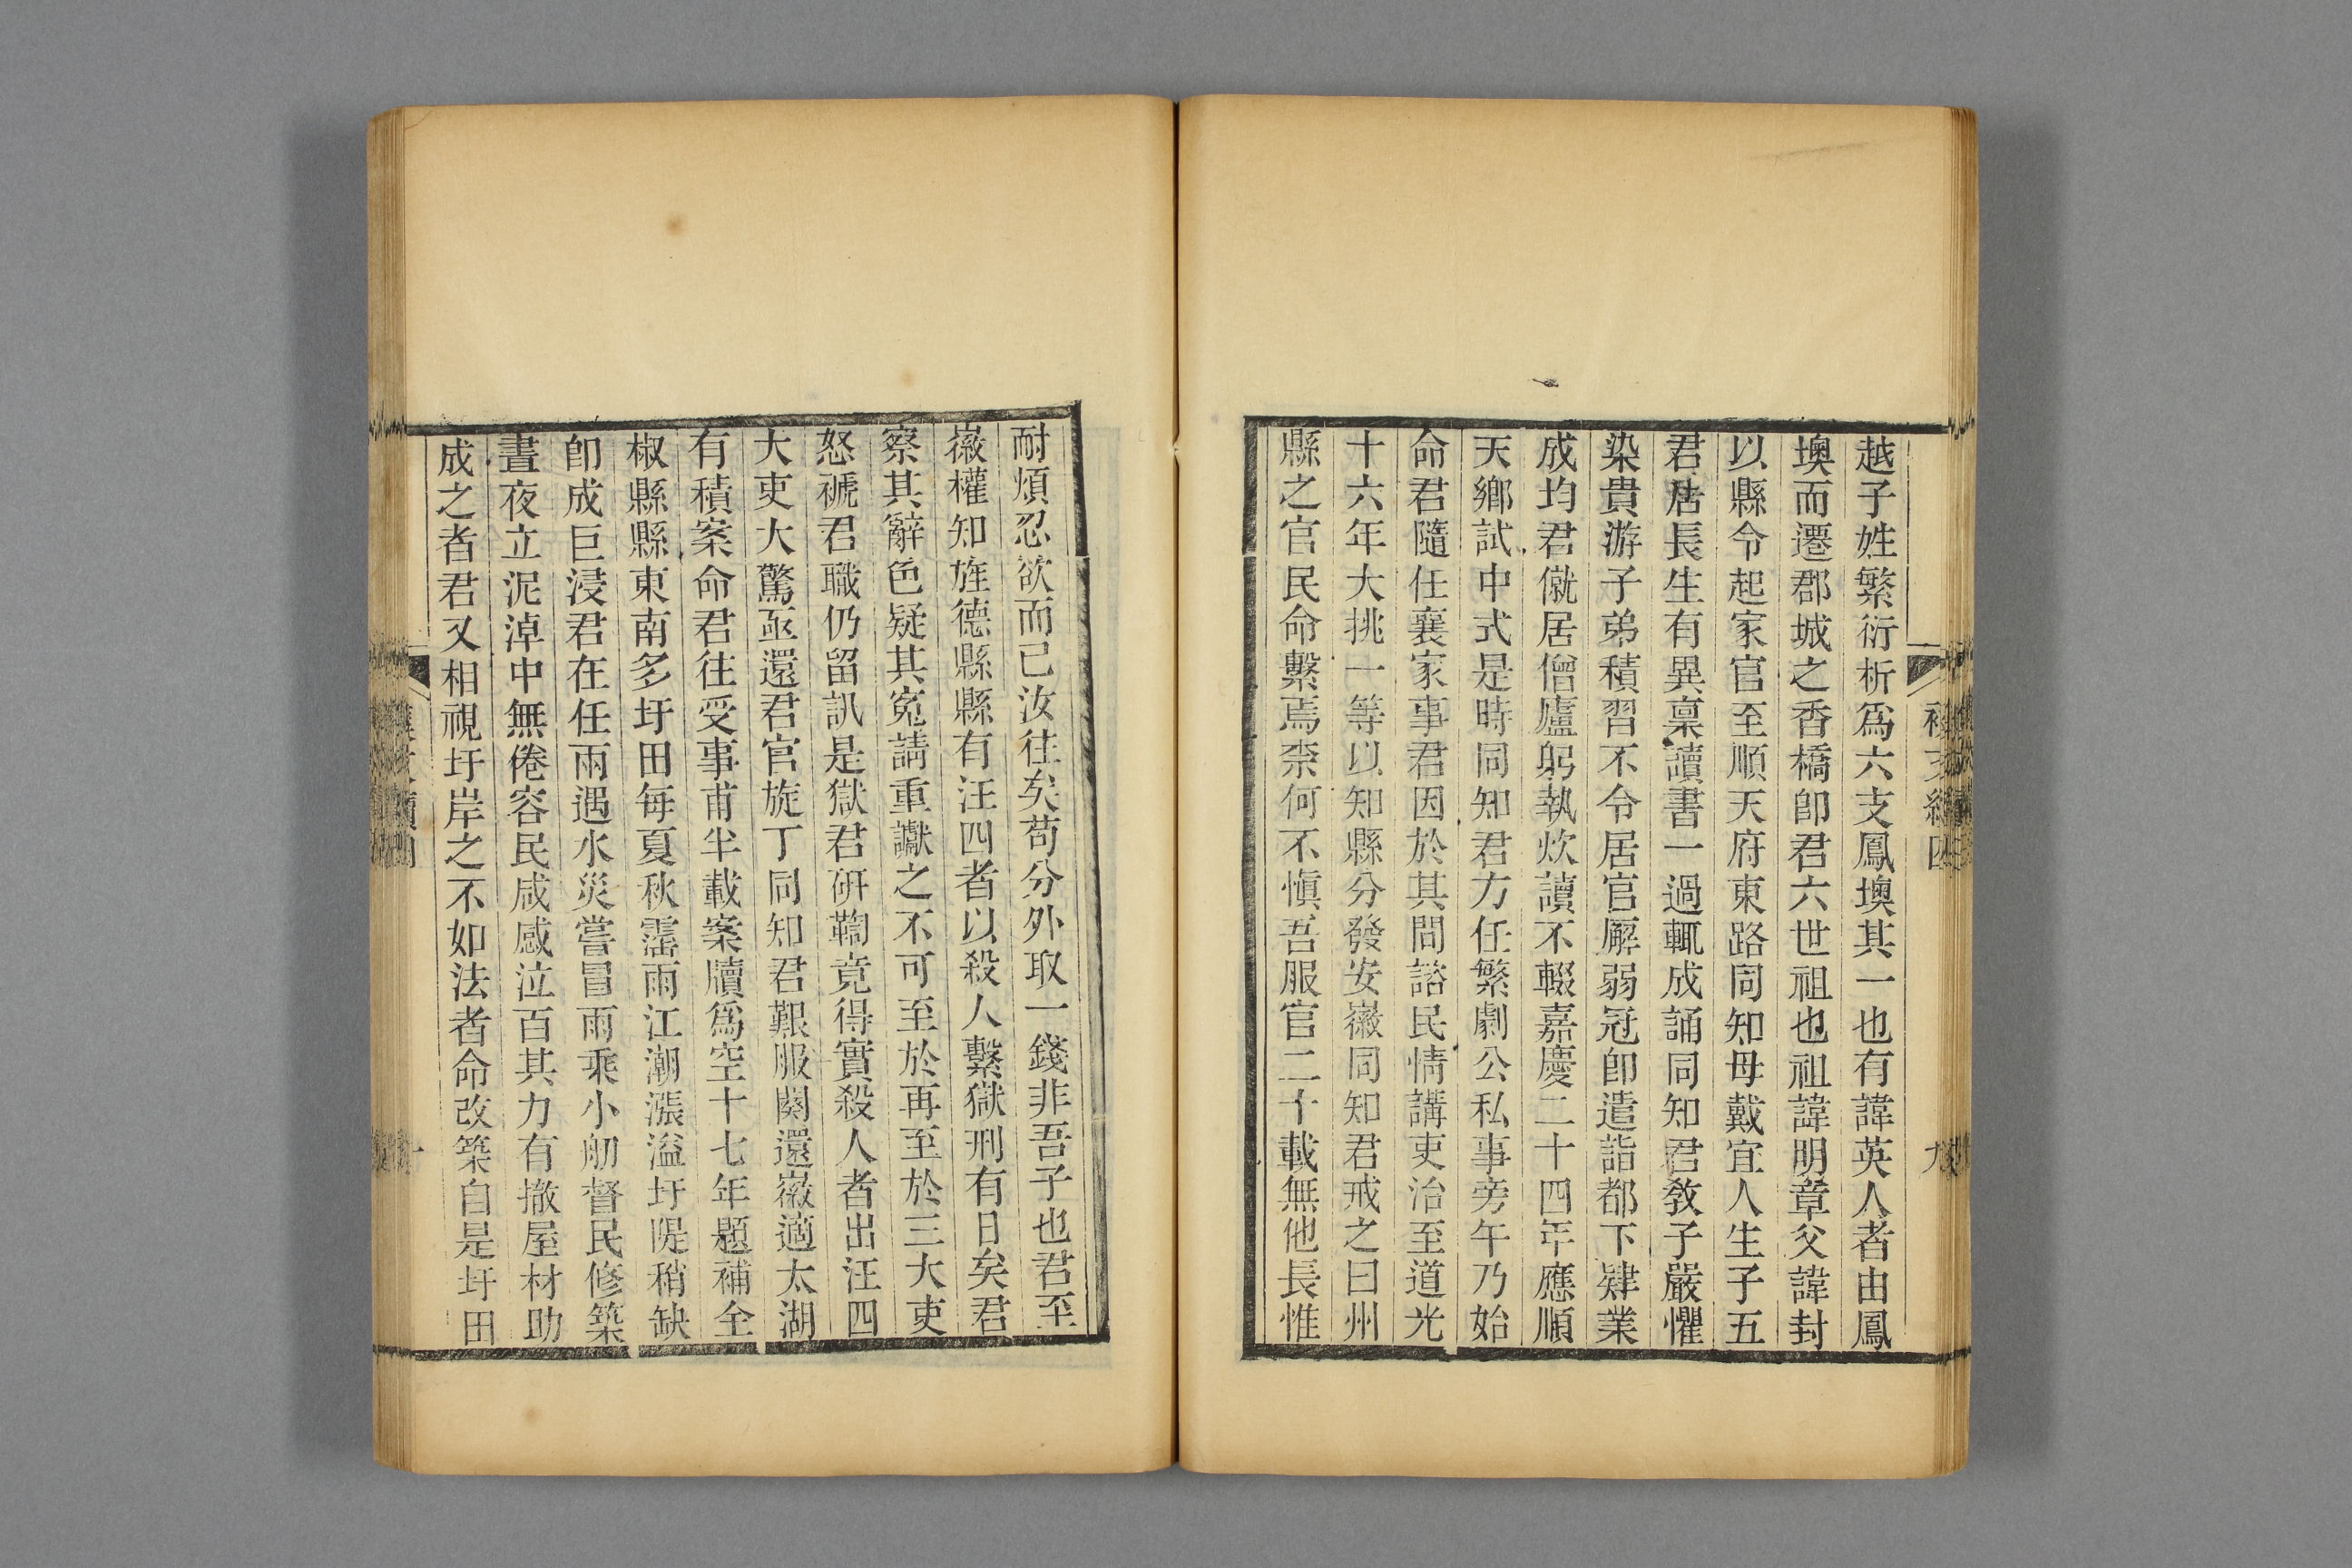 越子姓繁衍析爲六支鳳墺其一也有諱英人者由鳳
墺而遷郡城之香橋卽君六世祖也祖諱明章父諱封
以縣令起家官至順天府東路同知母戴宜人生子五
君居長生有異稟讀書一過輒成誦同知君敎子嚴懼
染貴游子弟積習不令居官廨弱冠卽遣詣都下肄業
成均君僦居僧廬躬執炊讀不輟嘉慶二十四年應順
天鄉試中式是時同知君方任繁劇公私事旁午乃始
命君隨任襄家事君因於其間諮民情講吏治至道光
十六年大挑一等以知縣分發安徽同知君戒之曰州
縣之官民命繫焉柰何不愼吾服官二十載無他長惟
耐煩忍欲而已汝往矣苟分外取一錢非吾子也君至
徽權知旌德縣縣有汪四者以殺人繫獄刑有日矣君
察其辭色疑其寃請重讞之不可至於再至於三大吏
怒褫君職仍留訊是獄君硏鞫竟得實殺人者出汪四
大吏大驚亟還君官旋丁同知君艱服闋還徽適太湖
有積案命君往受事甫半載案牘爲空十七年題補全
椒縣縣東南多圩田每夏秋霪雨江潮漲溢圩隄稍缺
卽成巨浸君在任兩遇水災嘗冒雨乘小舠督民修築
晝夜立泥淖中無倦容民咸感泣百其力有撤屋材助
成之者君又相視圩岸之不如法者命改築自是圩田